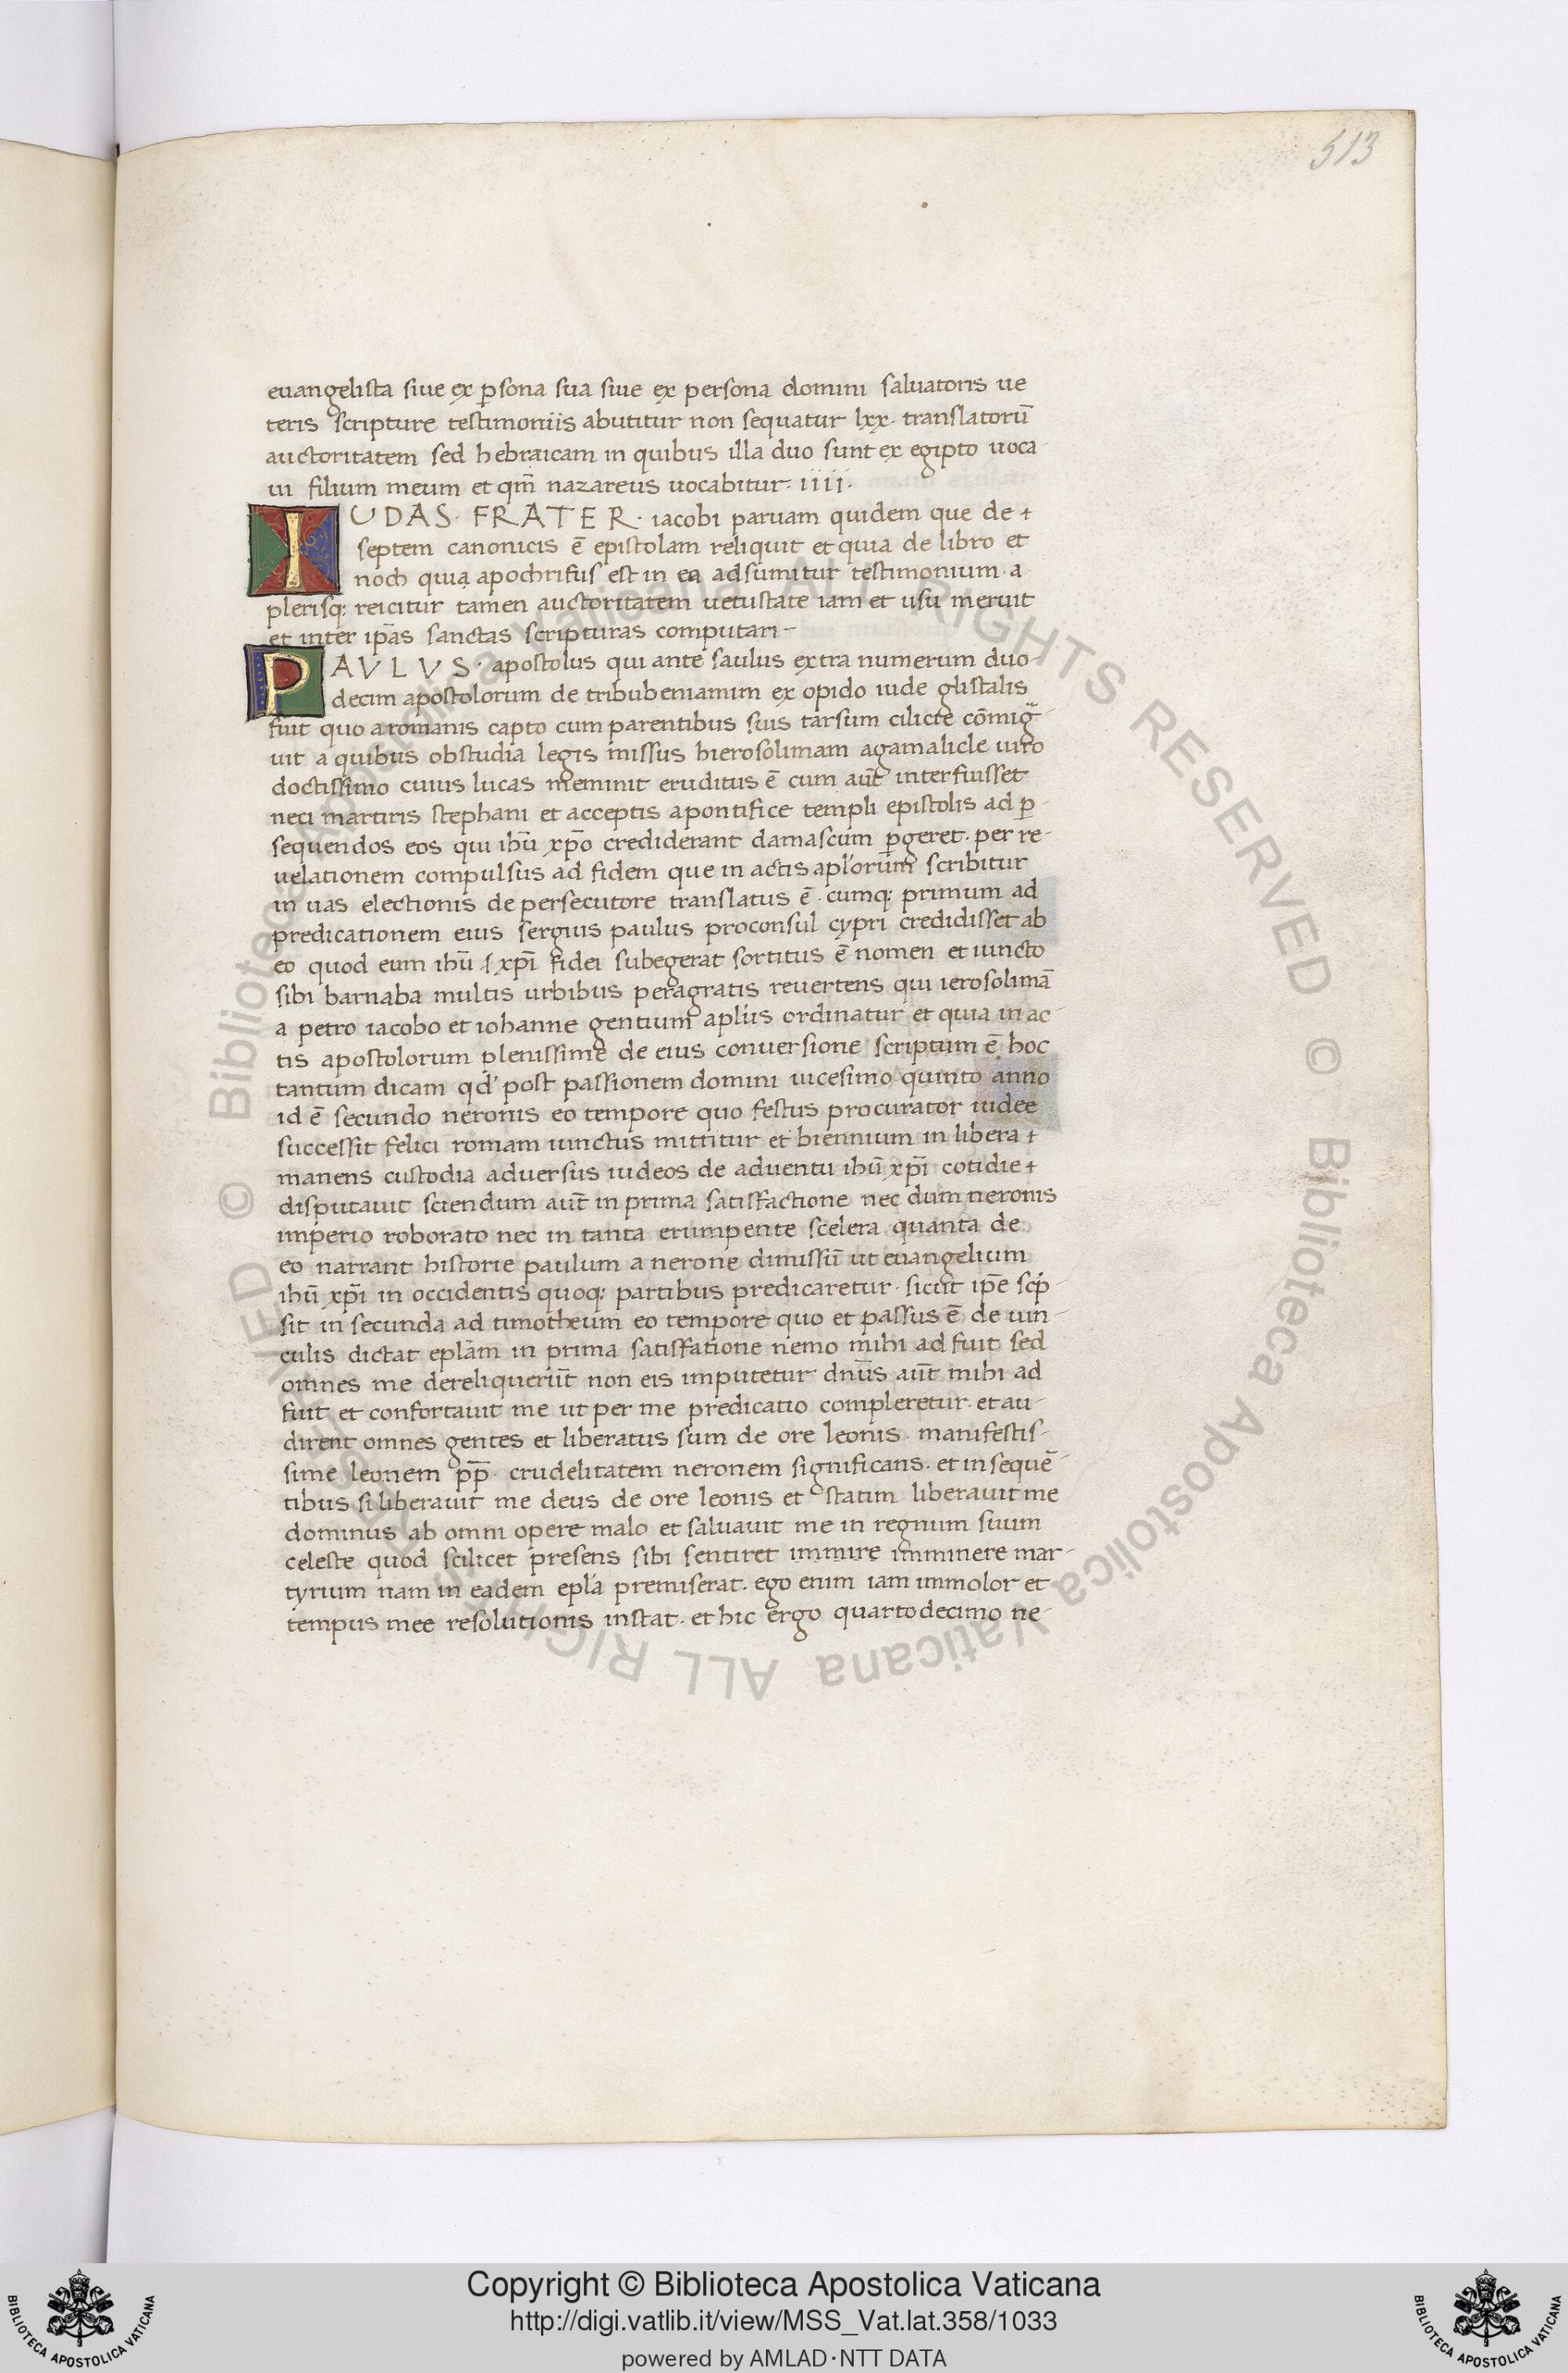 513
euangelista siue ex ꝑsona sua siue ex persona domini saluatoris ue
teris scripture testimoniis abutitur non sequatur lxx. translatorū
auctoritatem sed hebraicam in quibus illa duo sunt ex egipto uoca
ui filium meum et qm̄ nazareus uocabitur. iiii.
IUDAS. FRATER. iacobi paruam quidem que de
septem canonicis ē epistolam reliquit et quia de libro et
noch quia apochrifus est in ea adsumitur testimonium. a
plerisq: reicitur tamen auctoritatem uetustate iam et usu meruit
et inter ip̄as sanctas scripturas computari-
PAVLVS. apostolus qui ante saulus extra numerum duo-
decim apostolorum de tribubeniamim ex opido iude glistalis
fuit quo a romanis capto cum parentibus suis tarsum cilicie cōmig̃-
uit a quibus obstudia legis missus hierosolimam agamaliele uiro
doctissimo cuius lucas meminit eruditus ē cum aūt interfuisset
neci martiris stephani et acceptis apontifice templi epistolis ad ꝑ-
sequendos eos qui ihū xp̄o crediderant damascum ꝑgeret. per re-
uelationem compulsus ad fidem que in actis apl'orum scribitur
in uas electionis de persecutore translatus ē. cumq: primum ad
predicationem eius sergius paulus proconsul cypri credidisset ab
eo quod eum ihū xp̄i fidei subegerat sortitus ē nomen et iuncto
sibi barnaba multis urbibus peragratis reuertens qui ierosolimā
a petro iacobo et iohanne gentium apl'us ordinatur et quia in ac-
tis apostolorum plenissime de eius conuersione scriptum ē hoc
tantum dicam qd' post passionem domini uicesimo quinto anno
id ē secundo neronis eo tempore quo festus procurator iudee
successit felici romam uinctus mittitur et biennium in libera
manens custodia aduersus iudeos de aduentu ihū xp̄i cotidie
disputauit sciendum aūt in prima satisfactione nec dum neronis
imperio roborato nec in tanta erumpente scelera quanta de
eo narrant historie paulum a nerone dimissū ut euangelium
ihū xp̄i in occidentis quoq: partibus predicaretur. sicut ip̄e scp̄-
sit in secunda ad timotheum eo tempore quo et passus ē de uin-
culis dictat epl̄am in prima satisfatione nemo mihi ad fuit sed
omnes me dereliquerūt non eis imputetur dn̄us aūt mihi ad
fuit et confortauit me ut per me predicatio compleretur. et au-
dirent omnes gentes et liberatus sum de ore leonis. manifestis-
sime leonem pp̄. crudelitatem neronem significans. et in sequē-
tibus si liberauit me deus de ore leonis et statim liberauit me
dominus ab omni opere malo et saluauit me in regnum suum
celeste quod scilicet presens sibi sentiret immire imminere mar-
tyrium nam in eadem epl'a premiserat. ego enim iam immolor et
tempus mee resolutionis instat. et hic ergo quartodecimo ne-
© Biblioteca Apostolica Vaticana ALL RIGHTS RESERVED © Biblioteca Apostolica Vaticana ALL RIGHTS RESERVED
BIBLIOTECA APOSTOLICA VATICANA
Copyright © Biblioteca Apostolica Vaticana
http://digi.vatlib.it/view/MSS_Vat.lat.358/1033
powered by AMLAD·NTT DATA
BIBLIOTECA APOSTOLICA VATICANA